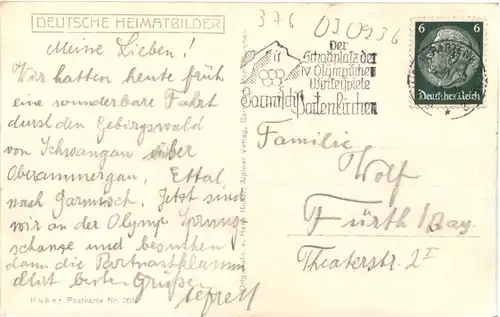 DEUTSCHE HEIMATBILDER
Meine Lieben!
Wir hatten heute früh
eine wunderbare Fahrt
durst den Gebirgswald
von Schwangau über
Oberammergau, Ettal
nach Garmisch. Jetzt sind
wir an der Olymp. Sprung-
schanze und besuchen
dann die Partnastklamm
Grüßen
Huber Postkarte Nr. 261
376
030936
Der
Schauplatz der
IV. Olympischen
Winterspiele
Garmisch
Partenkirchen
6 6
Deutsches Reich
Familie
Wolf
Fürth/Bay.
Theaterstr. 2 I